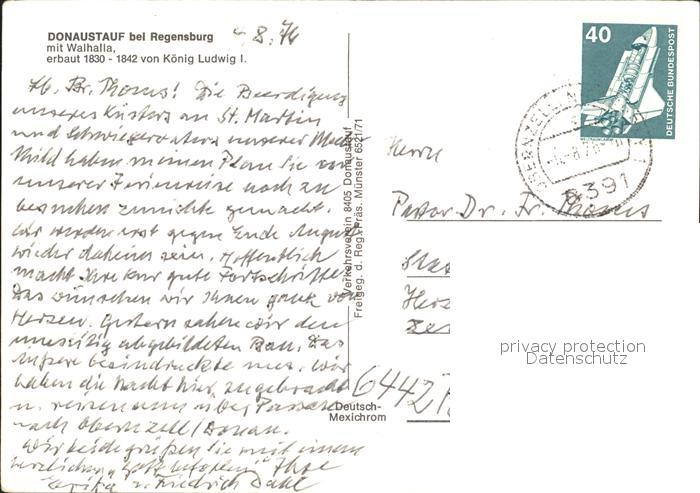 DONAUSTAUF bei Regensburg
mit Walhalla,
erbaut 1830 - 1842 von König Ludwig I.
4.8.76
Lb. Br. Thoms! Die Beerdigung
unseres Küsters an St. Martin
und Schwiegervaters unserer
haben meinen Plan Sie vor
unserer Ferienreise noch zu
besuchen zunichte gemacht.
Wir werden erst gegen Ende August
wieder daheim sein. Hoffentlich
macht Ihre Kur gute Fortschritte.
Das wünschen wir Ihnen ganz von
Herzen. Gestern sahen wir den
umseitig abgebildeten Bau. Das
Äußere beeindruckte uns. Wir
haben die Nacht hier zugebracht
u. reisen nun über Passau
nach Obernzell/Donau.
Wir beide grüßen Sie mit einem
herzlichen "Gott befohlen" Ihre
Erika u. Friedrich Dahl
Verkehrsverein 8405 Donaustauf
Freigeg. d. Reg. Präs. Münster 6521/71
Deutsch-
Mexichrom
40
DEUTSCHE BUNDESPOST
8391
Herrn
Pastor Dr. Fr. Thoms
6442
privacy protection
Datenschutz